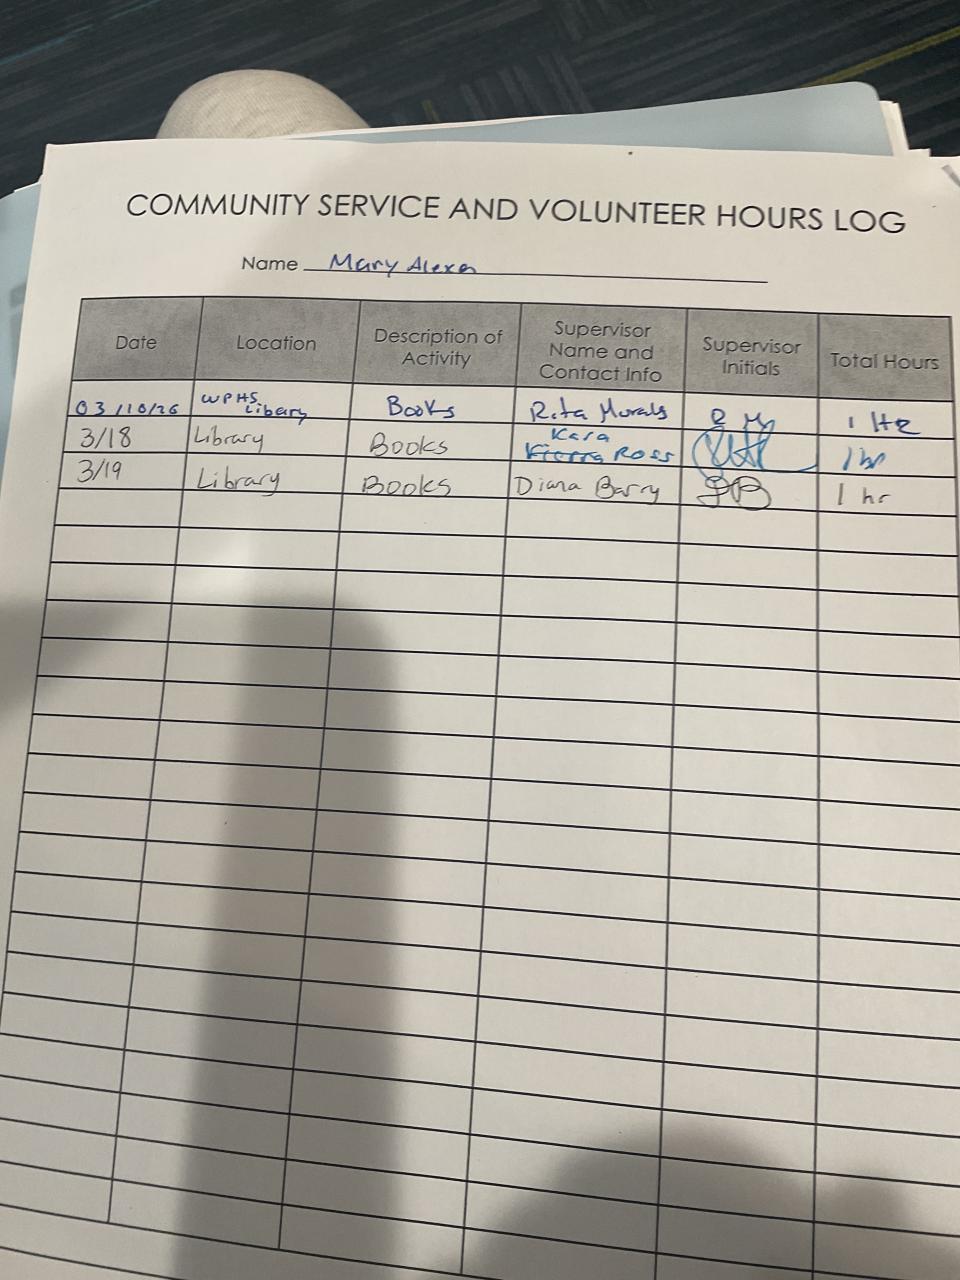 COMMUNITY SERVICE AND VOLUNTEER HOURS LOG
Name Mary Alexa
Date Location Description of Activity Supervisor Name and Contact Info Supervisor Initials Total Hours
03/10/26 WPHS Libary Books Rita Morals R M 1 HR
3/18 Library Books Kara Kierra Ross 1 hr
3/19 Library Books Diana Barry DB 1 hr